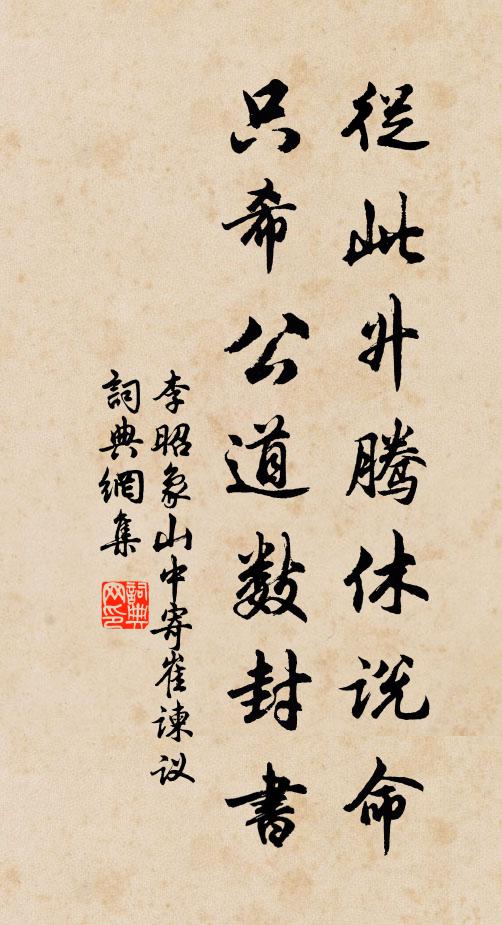 從此升騰休説命
只希公道數封書
李昭象山中寄崔諫议
詞典網集
詞典网印